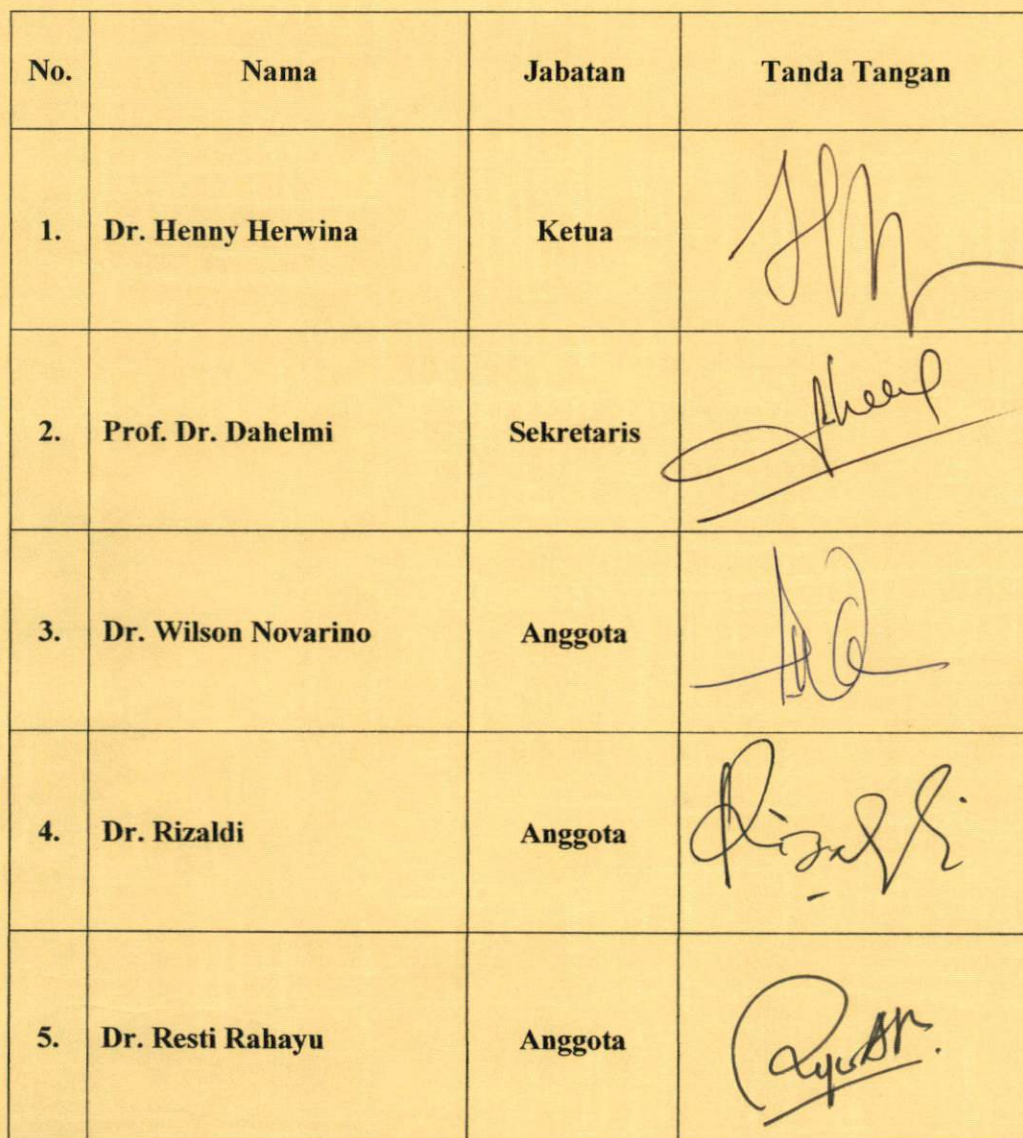 No. Nama Jabatan Tanda Tangan
1. Dr. Henny Herwina Ketua
2. Prof. Dr. Dahelmi Sekretaris
3. Dr. Wilson Novarino Anggota
4. Dr. Rizaldi Anggota
5. Dr. Resti Rahayu Anggota